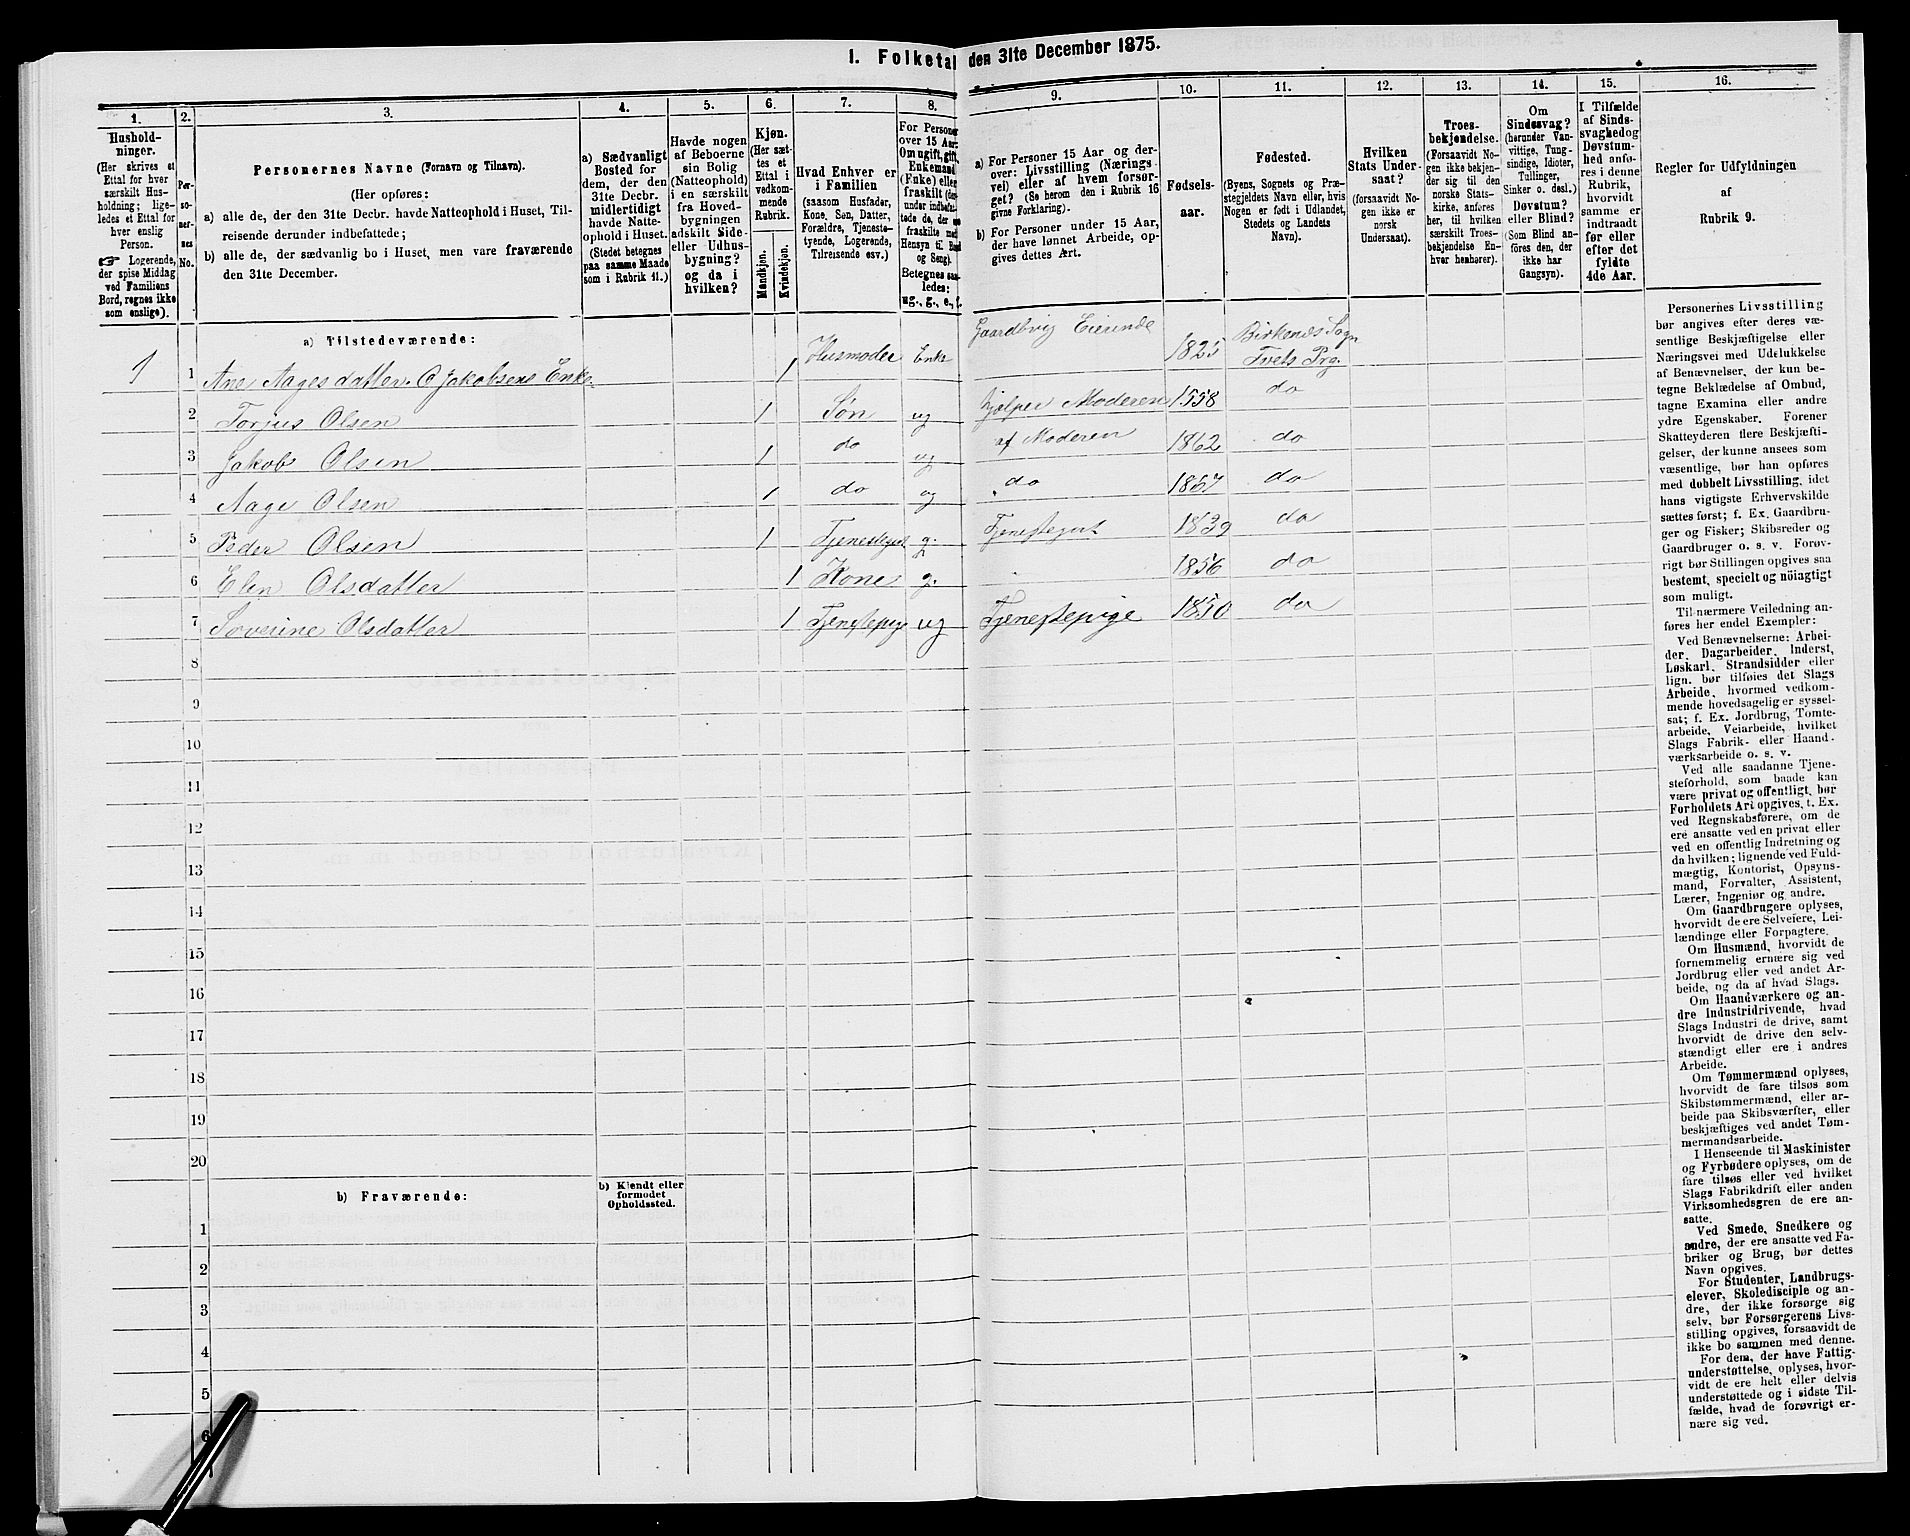 1. Folketal den 31te December 1875.
1.
2.
3.
4.
5.
6.
7.
8.
9.
10.
11.
12.
13.
14.
15.
16.
Hushold-
ninger.
(Her skrives et
Ettal for hver
særskilt Hus-
holdning; lige-
ledes et Ettal for
hver enslig
Person.
☞ Logerende,
der spise Middag
ved Familiens
Bord, regnes ikke
som enslige).
Per-
so-
ner-
nes
No.
Personernes Navne (Fornavn og Tilnavn).
(Her opføres:
a) alle de, der den 31te Decbr. havde Natteophold i Huset, Til-
reisende derunder indbefattede;
b) alle de, der sædvanlig bo i Huset, men vare fraværende
den 31te December.
a) Sædvanligt
Bosted for
dem, der den
31te Decbr.
midlertidigt
havde Natte-
ophold i Huset.
(Stedet betegnes
paa samme Maade
som i Rubrik 11.)
Havde nogen
af Beboerne
sin Bolig
(Natteophold)
i en særskilt
fra Hoved-
bygningen
adskilt Side-
eller Udhus-
bygning?
og da i
hvilken?
Kjøn.
(Her sæt-
tes et
Ettal i
vedkom-
mende
Rubrik.
Mandkjøn.
Kvindekjøn.
Hvad Enhver er
i Familien
(saasom Husfader,
Kone, Søn, Datter,
Forældre, Tjeneste-
tyende, Logerende,
Tilreisende osv.)
For Personer
over 15 Aar:
Om ugift, gift,
Enkemand
(Enke) eller
fraskilt (der-
under indbefat-
tede de, der ere
fraskilte med
Hensyn til Bord
og Seng).
Betegnes saa-
ledes:
ug., g., e., f.
a) For Personer 15 Aar og der-
over: Livsstilling (Nærings-
vei) eller af hvem forsør-
get? (Se herom den i Rubrik 16
givne Forklaring).
b) For Personer under 15 Aar,
der have lønnet Arbeide, op-
gives dettes Art.
Fødsels-
aar.
Fødested.
(Byens, Sognets og Præ-
stegjeldets Navn eller, hvis
Nogen er født i Udlandet,
Stedets og Landets
Navn).
Hvilken
Stats Under-
saat?
(forsaavidt No-
gen ikke er
norsk
Undersaat).
Troes-
bekjendelse.
(Forsaavidt No-
gen ikke bekjen-
der sig til den
norske Stats-
kirke, anføres
her, til hvilken
særskilt Troes-
bekjendelse En-
hver henhører).
Om
Sindssvag?
(herunder Van-
vittige, Tung-
sindige, Idioter,
Tullinger,
Sinker o. desl.)
Døvstum?
eller Blind?
(Som Blind an-
føres den, der
ikke har
Gangsyn).
I Tilfælde
af Sinds-
svaghed og
Døvstum-
hed anfø-
res i denne
Rubrik,
hvorvidt
samme er
indtraadt
før eller
efter det
fyldte
4de Aar.
Regler for Udfyldningen
af
Rubrik 9.
a) Tilstedeværende:
1 1 Ane Aagesdatter O Jakobsens Enke 1 Husmoder Enke Gaardbrug Eierinde 1825 Birkenes Sogn Tvets Prg.
2 Torjus Olsen 1 Søn ug hjelper Moderen 1558 do
3 Jakob Olsen 1 do ug af Moderen 1862 do
4 Aage Olsen 1 do ug do 1867 do
5 Peder Olsen 1 Tjenestegut g. Tjenestegut 1839 do
6 Elen Olsdatter 1 Kone g. 1856 do
7 Soverine Olsdatter 1 Tjenestepige ug Tjenestepige 1850 do
8
9
10
11
12
13
14
15
16
17
18
19
20
b) Fraværende:
b) Kjendt eller
formodet
Opholdssted.
1
2
3
4
5
6
Personernes Livsstilling
bør angives efter deres væ-
sentlige Beskjæftigelse eller
Næringsvei med Udelukkelse
af Benævnelser, der kun be-
tegne Beklædelse af Ombud,
tagne Examina eller andre
ydre Egenskaber. Forener
Skatteyderen flere Beskjæfti-
gelser, der kunne ansees som
væsentlige, bør han opføres
med dobbelt Livsstilling, idet
hans vigtigste Erhvervskilde
sættes først; f. Ex. Gaardbru-
ger og Fisker; Skibsreder og
Gaardbruger o. s. v. Forøv-
rigt bør Stillingen opgives saa
bestemt, specielt og nöiagtigt
som muligt.
Til nærmere Veiledning an-
føres her endel Exempler:
Ved Benævnelserne: Arbei-
der, Dagarbeider, Inderst,
Løskarl, Strandsidder eller
lign. bør tilføies det Slags
Arbeide, hvormed vedkom-
mende hovedsagelig er syssel-
sat; f. Ex. Jordbrug, Tomte-
arbeide, Veiarbeide, hvilket
Slags Fabrik- eller Haand-
værksarbeide o. s. v.
Ved alle saadanne Tjene-
steforhold, som baade kan
være privat og offentligt, bør
Forholdets Art opgives, t. Ex.
ved Regnskabsførere, om de
ere ansatte ved en privat eller
ved en offentlig Indretning og
da hvilken; lignende ved Fuld-
mægtig, Kontorist, Opsyns-
mand, Forvalter, Assistent,
Lærer, Ingeniør og andre.
Om Gaardbrugere oplyses,
hvorvidt de ere Selveiere, Lei-
lændinge eller Forpagtere.
Om Husmænd, hvorvidt de
fornemmelig ernære sig ved
Jordbrug eller ved andet Ar-
beide, og da af hvad Slags.
Om Haandværkere og an-
dre Industridrivende, hvad
Slags Industri de drive, samt
hvorvidt de drive den selv-
stændigt eller ere i andres
Arbeide.
Om Tømmermænd oplyses,
hvorvidt de fare tilsøs som
Skibstømmermænd, eller ar-
beide paa Skibsværfter, eller
beskjæftiges ved andet Tøm-
mermandsarbeide.
I Henseende til Maskinister
og Fyrbødere oplyses, om de
fare tilsøs eller ved hvilket
Slags Fabrikdrift eller anden
Virksomhedsgren de ere an-
satte.
Ved Smede, Snedkere og
andre, der ere ansatte ved Fa-
briker og Brug, bør dettes
Navn opgives.
For Studenter, Landbrugs-
elever, Skoledisciple og an-
dre, der ikke forsørge sig
selv, bør Forsørgerens Livs-
stilling opgives, forsaavidt de
ikke bo sammen med denne.
For dem, der have Fattig-
understøttelse, oplyses, hvor-
vidt de ere helt eller delvis
understøttede og i sidste Til-
fælde, hvad de forøvrigt er-
nære sig ved.